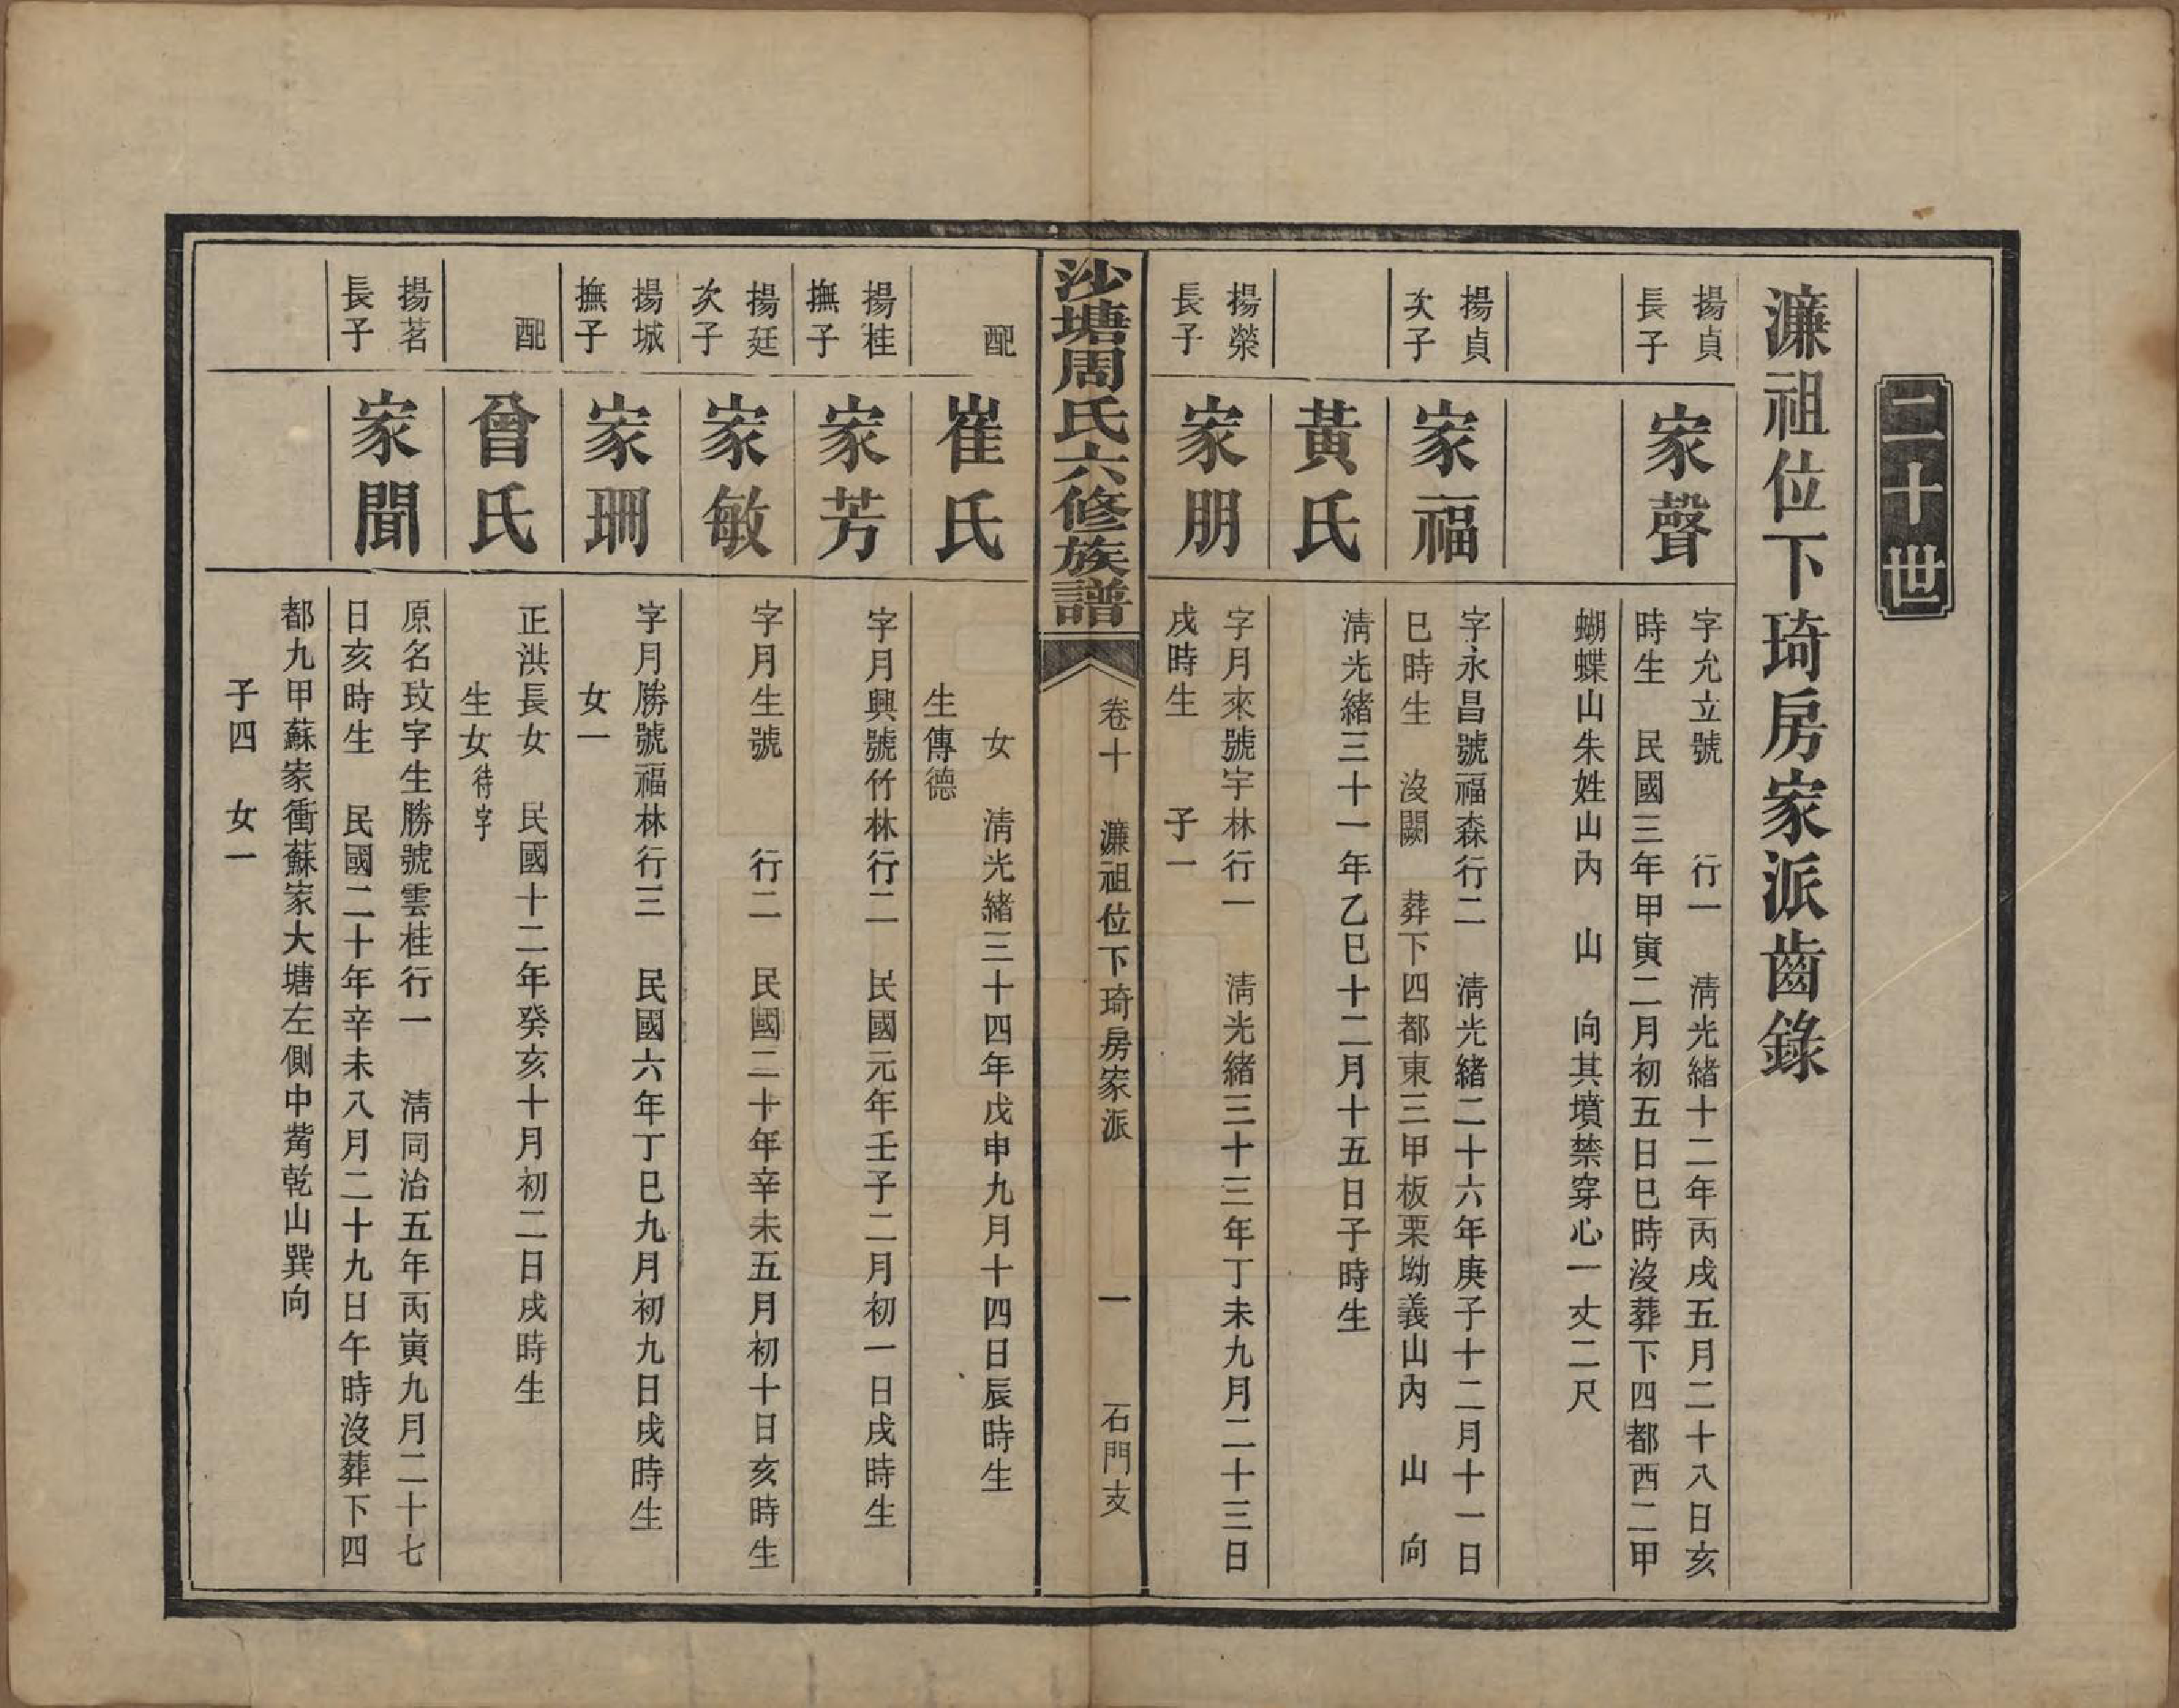 二十世
濂祖位下琦房家派齒錄
揚貞
長子
家聲
字允立號 行一 清光緒十二年丙戌五月二十八日亥
時生 民國三年甲寅二月初五日巳時沒葬下四都西二甲
蝴蝶山朱姓山內 山 向其墳禁穿心一丈二尺
揚貞
次子
家福
字永昌號福森行二 清光緒二十六年庚子十二月十一日
巳時生 沒闕 葬下四都東三甲板栗坳義山內 山 向
黃氏
清光緒三十一年乙巳十二月十五日子時生
揚榮
長子
家朋
字月來號宇林行一 清光緒三十三年丁未九月二十三日
戌時生 子一
沙塘周氏六修族譜
卷十 濂祖位下琦房家派 一 石門支
配
崔氏
女 清光緒三十四年戊申九月十四日辰時生
生傳德
揚桂
撫子
家芳
字月興號竹林行二 民國元年壬子二月初一日戌時生
揚廷
次子
家敏
字月生號 行二 民國二十年辛未五月初十日亥時生
揚城
撫子
家珊
字月勝號福林行三 民國六年丁巳九月初九日戌時生
女一
配
曾氏
正洪長女 民國十二年癸亥十月初二日戌時生
生女待字
揚茗
長子
家聞
原名玟字生勝號雲桂行一 清同治五年丙寅九月二十七
日亥時生 民國二十年辛未八月二十九日午時沒葬下四
都九甲蘇家衝蘇家大塘左側中觜乾山巽向
子四 女一